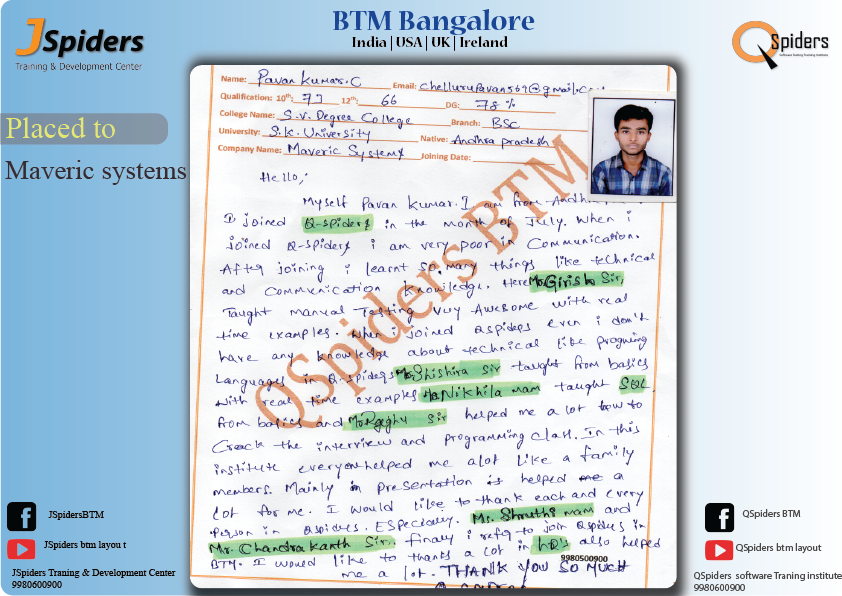 JSpiders
Training & Development Center
BTM Bangalore
India | USA | UK | Ireland
QSpiders
Software Testing Training Institute
Placed to
Maveric systems
Name: Pavan Kumar.C Email: chellurupavan569@gmail.com
Qualification: 10th: 77 12th: 66 DG: 78 %
College Name: S.V. Degree College Branch: BSC
University: S.K. University Native: Andhra pradesh
Company Name: Maveric Systems Joining Date:
Hello,
Myself Pavan Kumar. I am from Andh
I joined Q-spiders in the month of July. When i
joined Q-spiders i am very poor in Communication.
After joining i learnt so many things like technical
and Communication knowledge. Here Mr.Girish Sir,
Taught manual Testing very Awesome with real
time examples. When i joined Qspiders even i don't
have any knowledge about technical like progming
Languages in Q-spiders Mr.Shishira sir taught from basics
with real time examples Ms.Nikhila mam taught SQL
from basics and Mr.Raghu Sir helped me a lot how to
Crack the interview and programming class. In this
institute everyone helped me alot like a family
members. Mainly in presentation is helped me a
lot for me. I would like to thank each and every
person in Qspiders. Especially. Ms. Shruthi mam and
Mr. Chandrakanth Sir. finaly i refer to join Qspiders in
BTM. I would like to thanks a lot in HR's also helped
me a lot. THANK YOU SO MUCH
QSpiders BTM
9980500900
JSpidersBTM
JSpiders btm layou t
JSpiders Traning & Development Center
9980600900
QSpiders BTM
QSpiders btm layout
QSpiders software Traning institute
9980600900